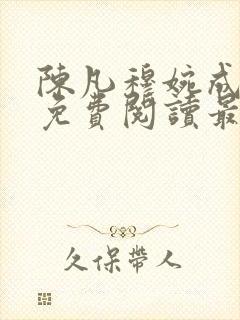 陳凡穆婉成
免費閱讀最
久保帶人